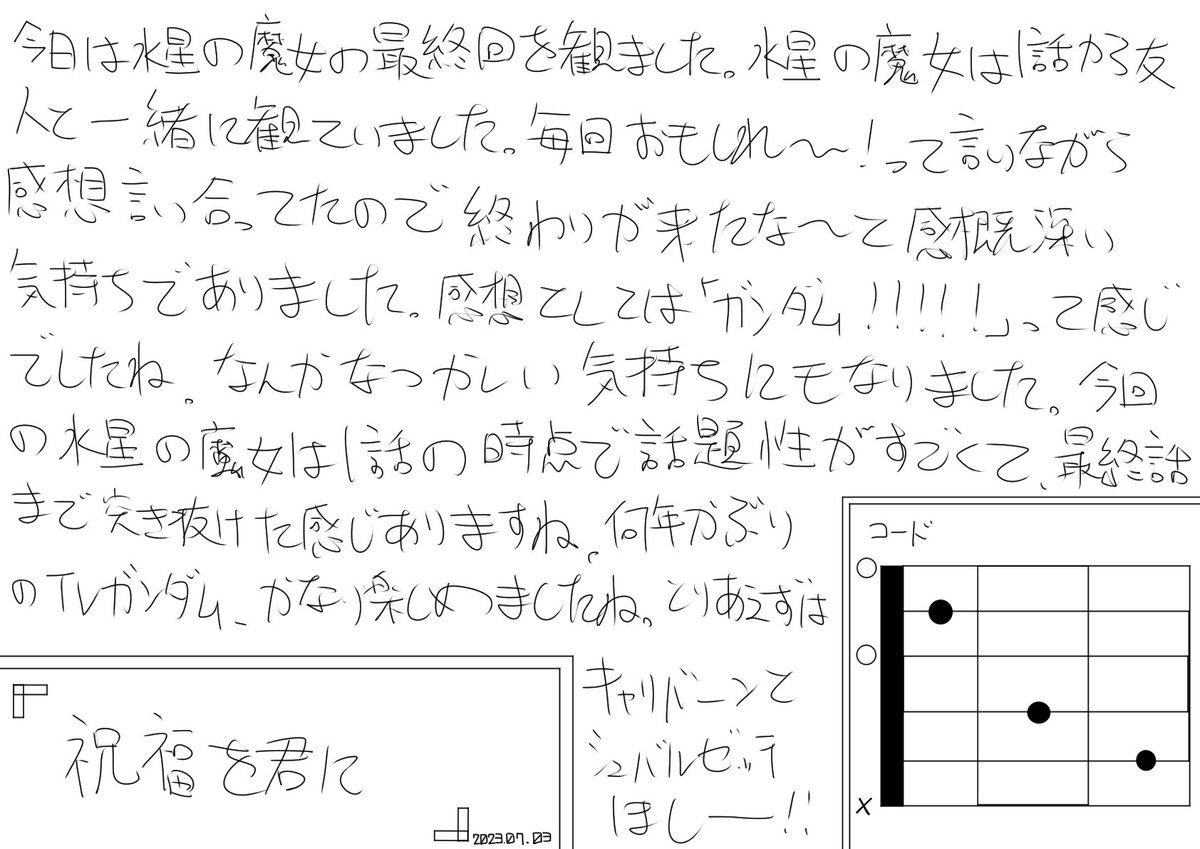 今日は水星の魔女の最終回を観ました。水星の魔女は1話から友
人と一緒に観ていました。毎回おもしれ〜〜!って言いながら
感想言い合ってたので終わりが来たな〜と感慨深い
気持ちでありました。感想としては「ガンダム!!!!!」って感じ
でしたね。なんかなつかしい気持ちにもなりました。今回
の水星の魔女は1話の時点で話題性がすごくて、最終話
まで突き抜けた感じありますね。何年かぶり
のTVガンダム、かなり楽しめつましたね。とりあえずは
キャリバーンと
シュバルゼッテ
ほしー!!
コード
x
祝福を君に
2023.07.03